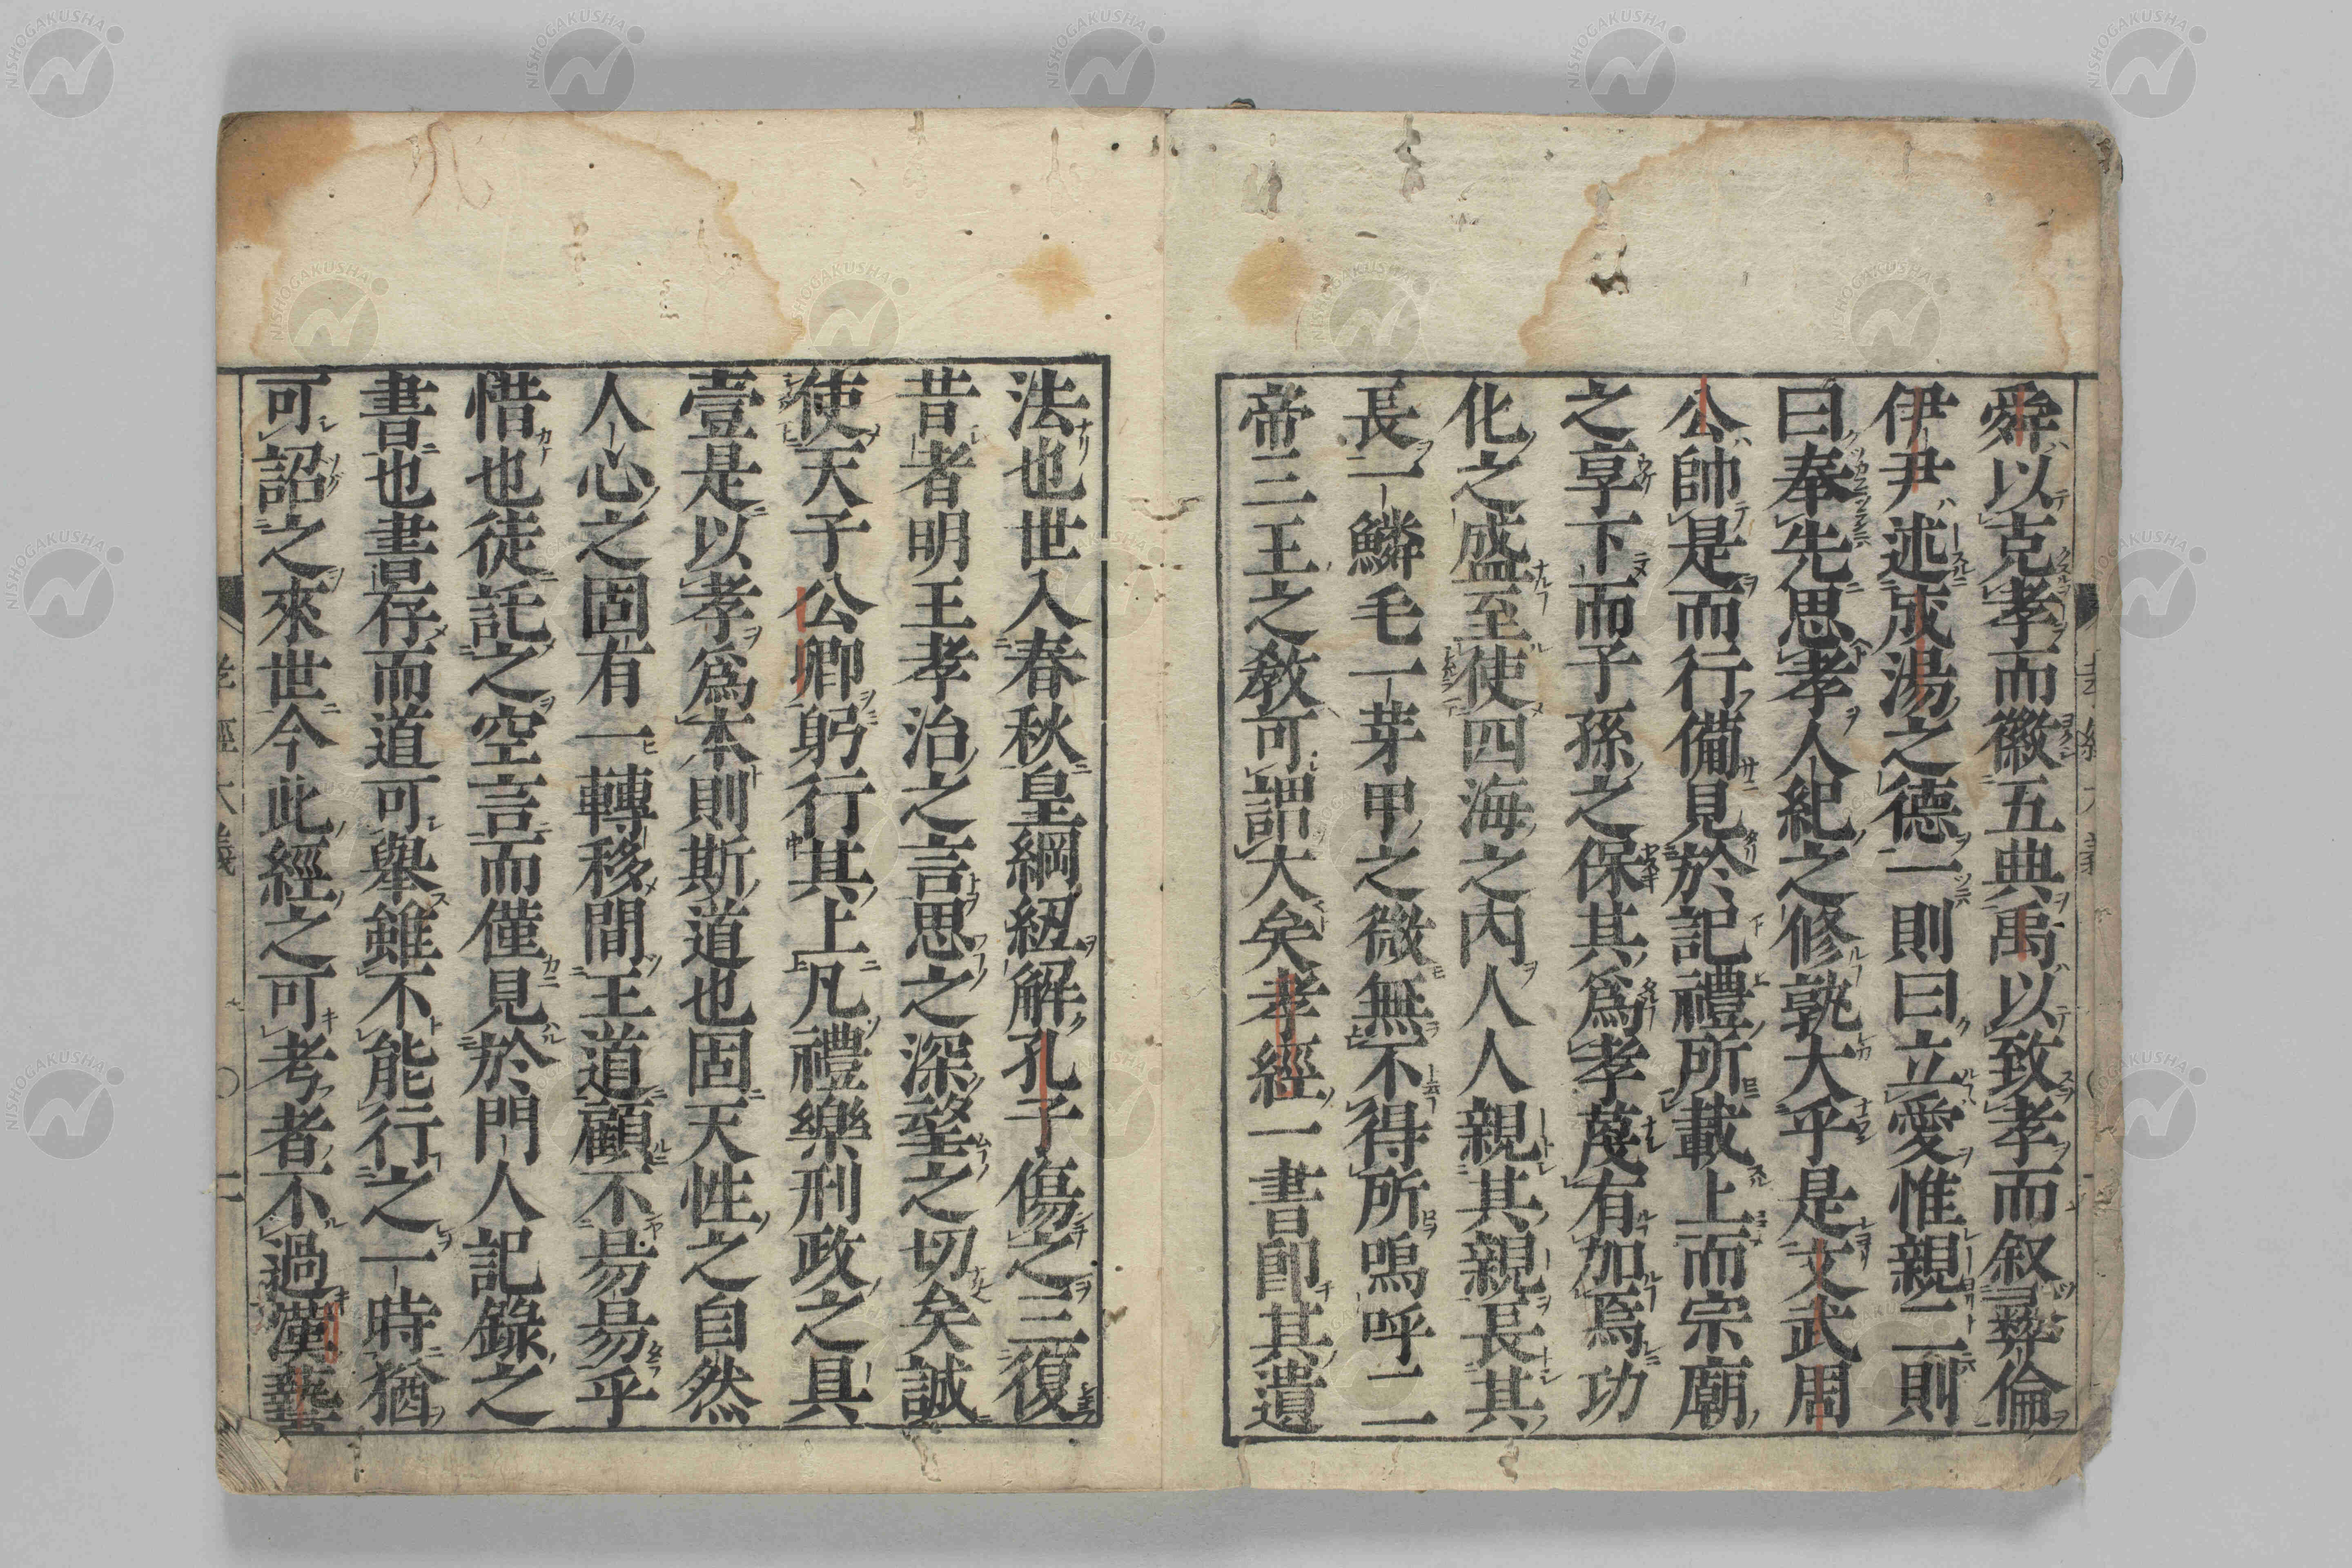 舜以克孝而徽五典禹以致孝而叙彛倫
伊尹述成湯之德一則曰立愛惟親二則
曰奉先思孝人紀之修孰大乎是文武周
公帥是而行備見於記禮所載上而宗廟
之享下而子孫之保其爲孝蔑有加焉功
化之盛至使四海之内人人親其親長其
長一鱗毛一芽甲之微無不得所嗚呼二
帝三王之教可謂大矣孝經一書卽其遺
法也世入春秋皇綱紐解孔子傷之三復
昔者明王孝治之言思之深望之切矣誠
使天子公卿躬行其上凡禮樂刑政之具
壹是以孝爲本則斯道也固天性之自然
人心之固有一轉移間王道顧不易易乎
惜也徒託之空言而僅見於門人記錄之
書也書存而道可舉雖不能行之一時猶
可詔之來世今此經之可考者不過漢藝
孝經大義
NISHOGAKUSHA